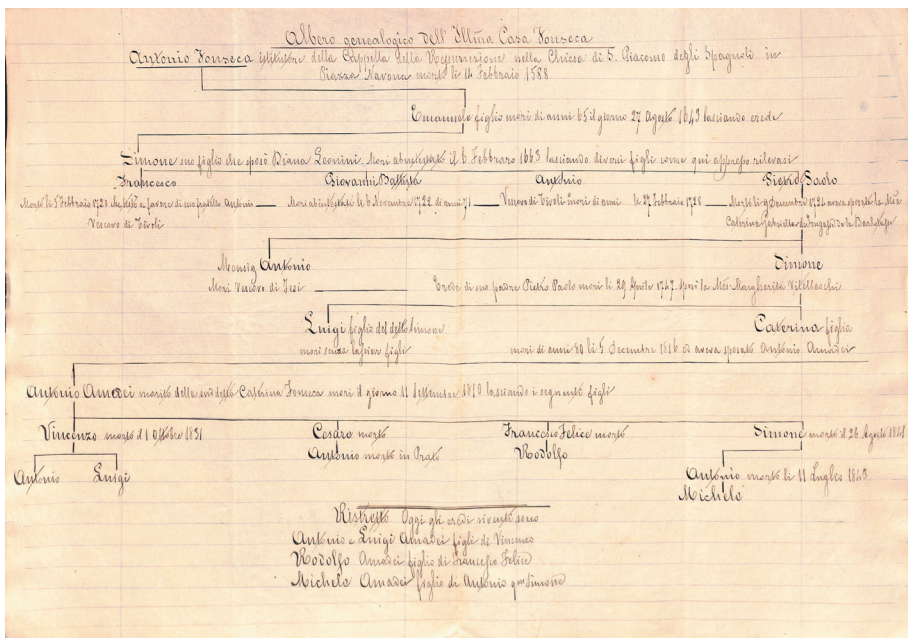 Albero genealogico dell' Illma Casa Fonseca
Antonio Fonseca istitutore della Cappella della Resurrezione nella Chiesa di S. Giacomo degli Spagnoli in
Piazza Navona morto li 14 Febbraio 1588
Emanuele figlio morì di anni 65 il giorno 27 Agosto 1643 lasciando erede
Simone suo figlio che sposò Diana Leonini. Morì abintestato il 6 Febbraro 1663 lasciando diversi figli come qui appresso rilevasi
Francesco Giovanni Battista Antonio Pietro Paolo
Morto li 5 Febbraio 1720 a favore di suo fratello Antonio — Morì abintestato li 6 Novembre 1722 di anni 71 — Vescovo di Tivoli morì di anni le 27 Febbraio 1728 — Morto li 9 Decembre 1724 aveva sposato la
Vescovo di Tivoli Caterina Gabriella
Monsig. Antonio Simone
Morì Vescovo di Jesi — Erede di suo padre Pietro Paolo morì li 29 Aprile 1747. sposò la Margherita Vitelleschi
Luigi figlio del detto Simone Caterina figlia
morì senza lasciar figli morì di anni 80 li 5 Decembre 1816 ed aveva sposato Antonio Amadei
Antonio Amadei marito della suddetto Caterina Fonseca morì il giorno 11 Settembre 1819 lasciando i seguenti figli
Vincenzo morto il 1 Ottobre 1831 Cesare morto Francesco Felice morto Simone morto il 26 Agosto 1841
Antonio morto in Prato Rodolfo
Antonio Luigi Antonio morto li 11 Luglio 1843
Michele
Ristretto Oggi gli eredi viventi sono
Antonio e Luigi Amadei figli di Vincenzo
Rodolfo Amadei figlio di Francesco Felice
Michele Amadei figlio di Antonio qm Simone